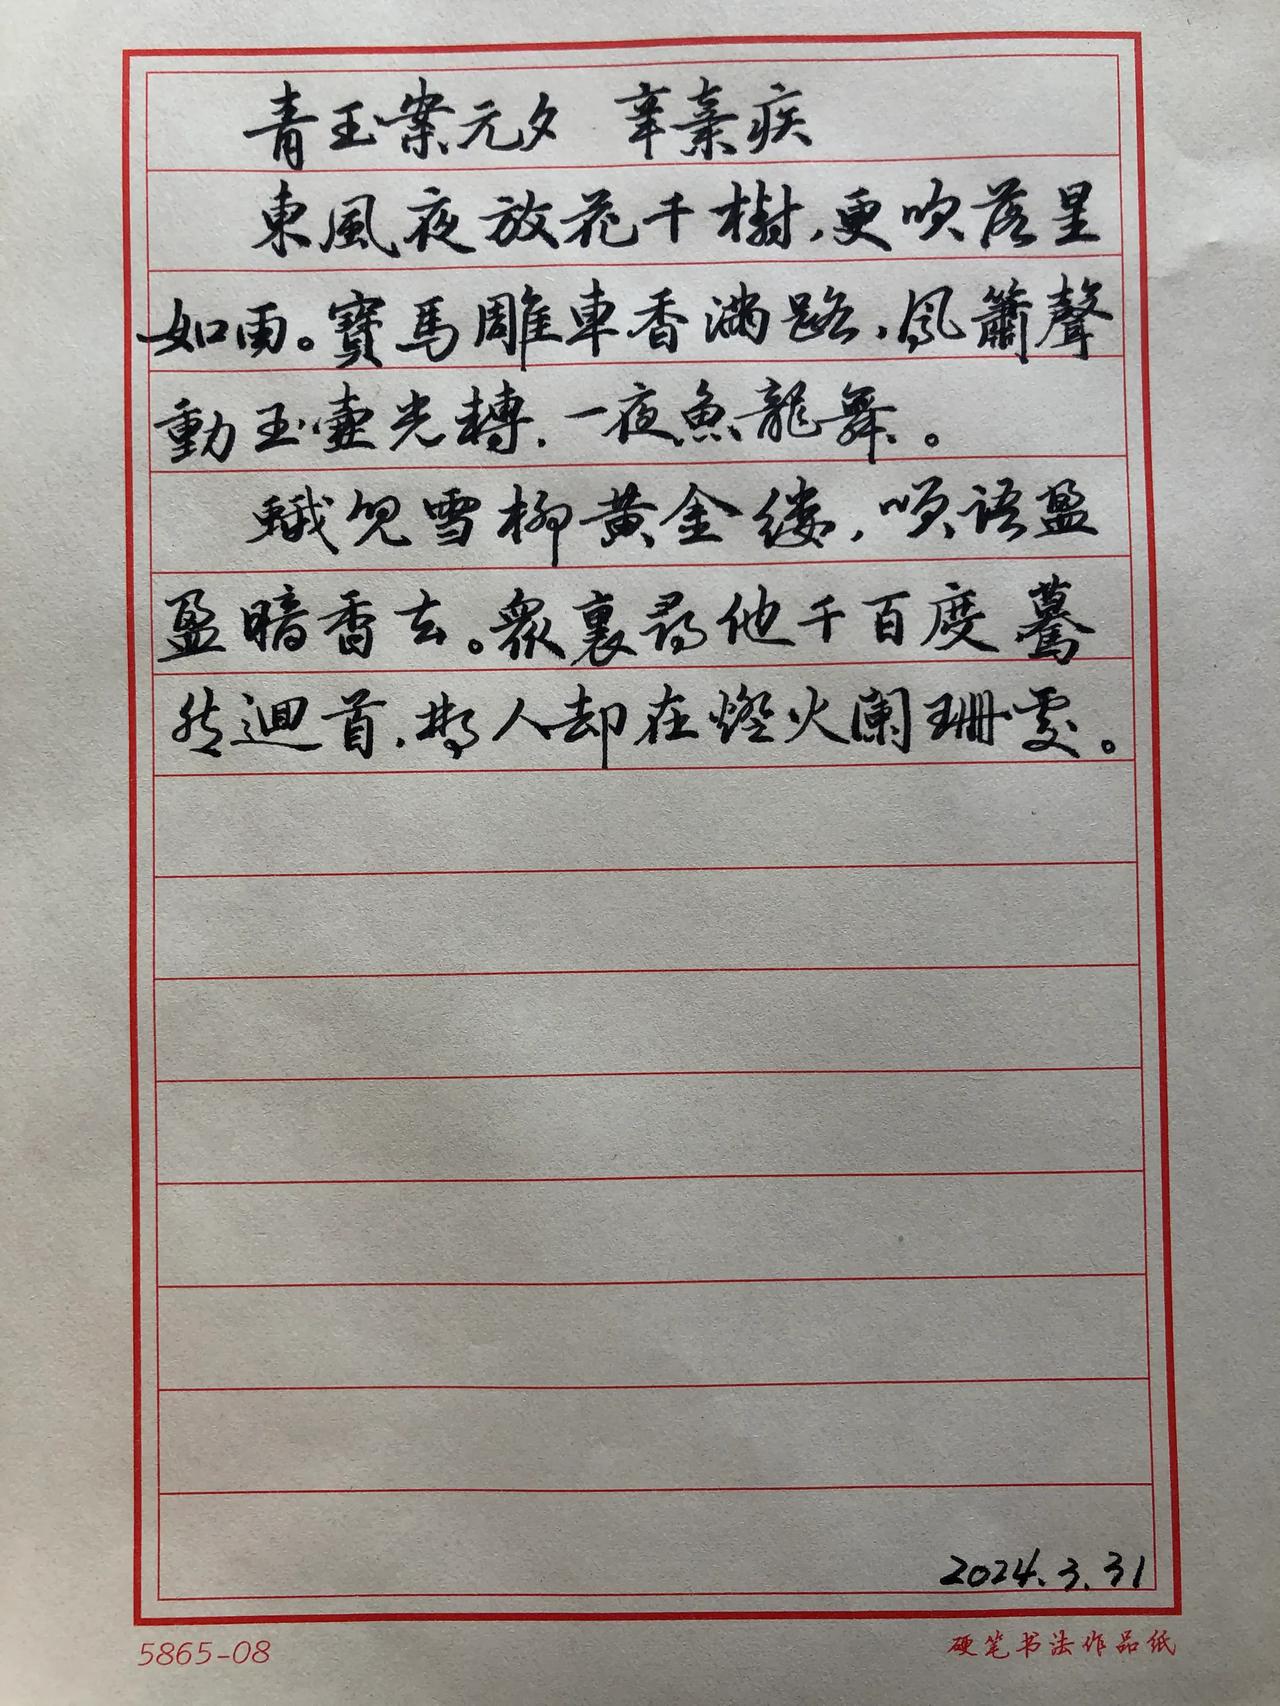 青玉案元夕 辛棄疾
東風夜放花千樹,更吹落星
如雨。寶馬雕車香滿路,鳳簫聲
動玉壺光轉,一夜魚龍舞。
蛾兒雪柳黃金縷,笑語盈
盈暗香去。衆裏尋他千百度驀
然迴首,那人却在燈火闌珊處。
2024.3.31
5865-08
硬笔书法作品纸